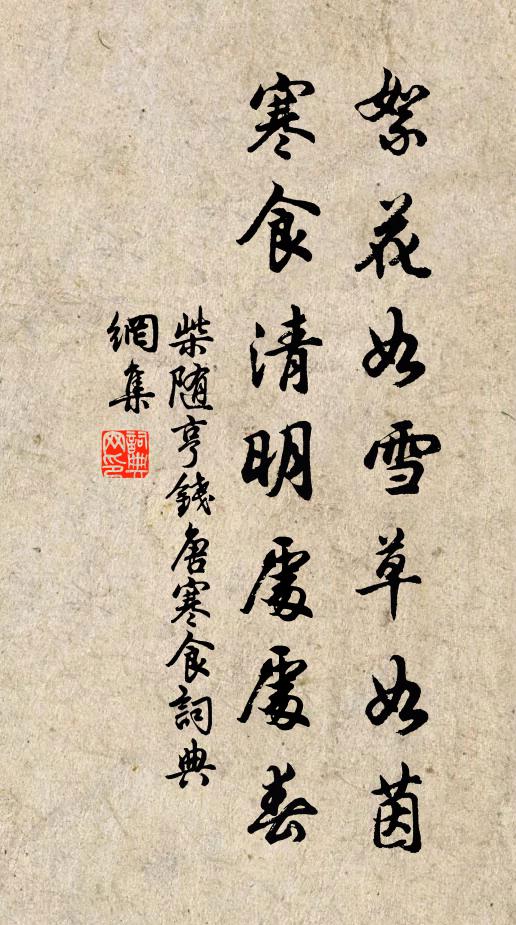 絮花如雪草如茵
寒食清明處處春
柴随亨錢唐寒食詞典
網集
詞典網印